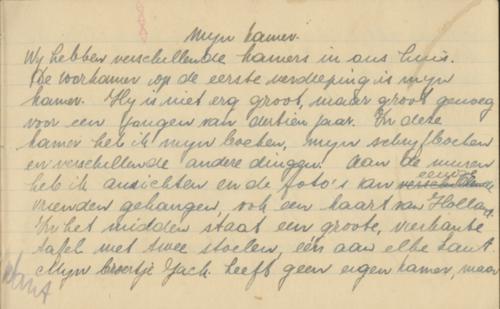 Mijn kamer.
Wij hebben verschillende kamers in ons huis.
De voorkamer op de eerste verdieping is mijn
kamer. Hij is niet erg groot, maar groot genoeg
voor een jongen van dertien jaar. In deze
kamer heb ik mijn boeken, mijn schrijfboeken
en verschillende andere dingen. Aan de muren
heb ik ansichten en de foto's van
vrienden gehangen, ook een kaart van Holland.
In het midden staat een groote, vierkante
tafel met twee stoelen, één aan elke kant.
Mijn broertje Jack heeft geen eigen kamer, maar